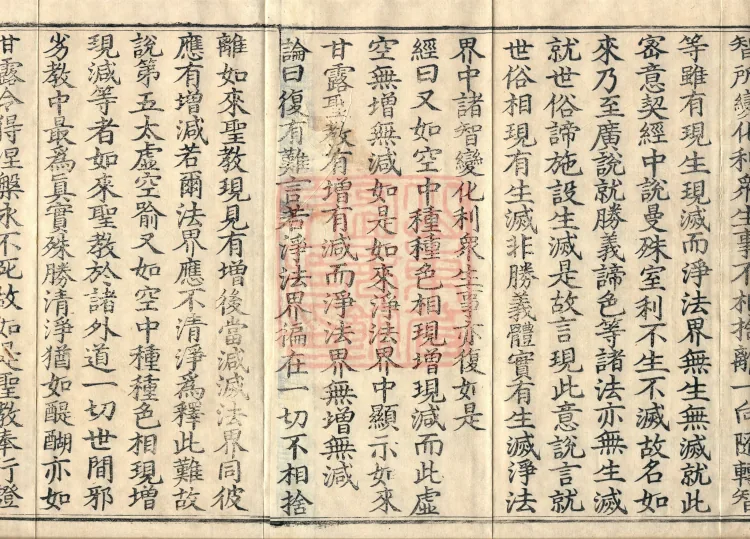 智所變化利衆生事不相捨離一向隨轉智
等雖有現生現滅而淨法界無生無滅就此
密意契經中說曼殊室利不生不滅故名如
來乃至廣說就勝義諦色等諸法亦無生滅
就世俗諦施設生滅是故言現此意說言就
世俗相現有生滅非勝義體實有生滅淨法
界中諸智變化利衆生事亦復如是
經曰又如空中種種色相現增現減而此虛
空無增無減如是如來淨法界中顯示如來
甘露聖教有增有減而淨法界無增無減
論曰復有難言若淨法界徧在一切不相捨
離如來聖教現見有增後當減滅法界同彼
應有增減若爾法界應不清淨為釋此難故
說第五太虛空喻又如空中種種色相現增
現減等者如來聖教於諸外道一切世間邪
劣教中最為真實殊勝清淨猶如醍醐亦如
甘露令得涅槃永不死故如是聖教奉行證